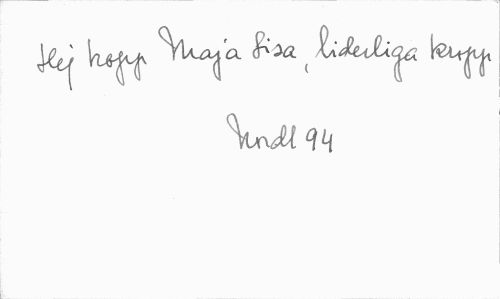 Hej hopp Maja Lisa, liderliga kropp
Mndl 94